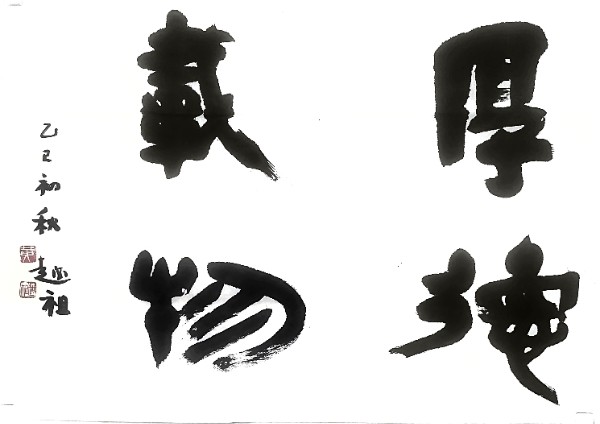 厚德
载物
乙巳初秋
越祖